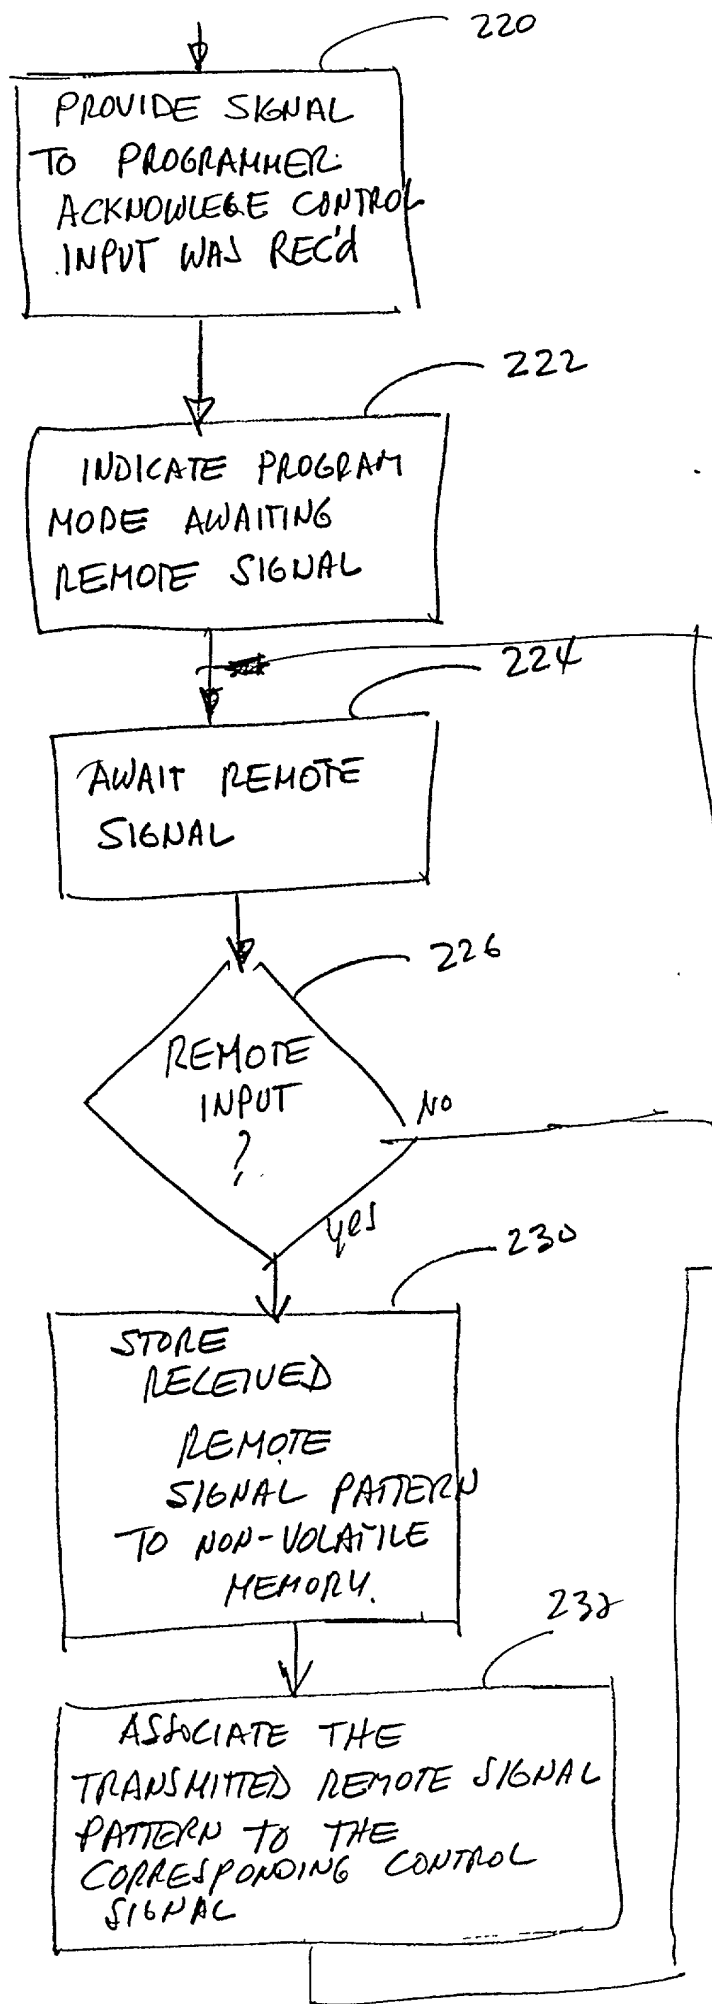 220
PROVIDE SIGNAL
TO PROGRAMMER:
ACKNOWLEGE CONTROL
INPUT WAS REC'd
222
INDICATE PROGRAM
MODE AWAITING
REMOTE SIGNAL
224
AWAIT REMOTE
SIGNAL
226
REMOTE
INPUT
?
NO
yes
230
STORE
RECEIVED
REMOTE
SIGNAL PATTERN
TO NON-VOLATILE
MEMORY.
232
ASSOCIATE THE
TRANSMITTED REMOTE SIGNAL
PATTERN TO THE
CORRESPONDING CONTROL
SIGNAL